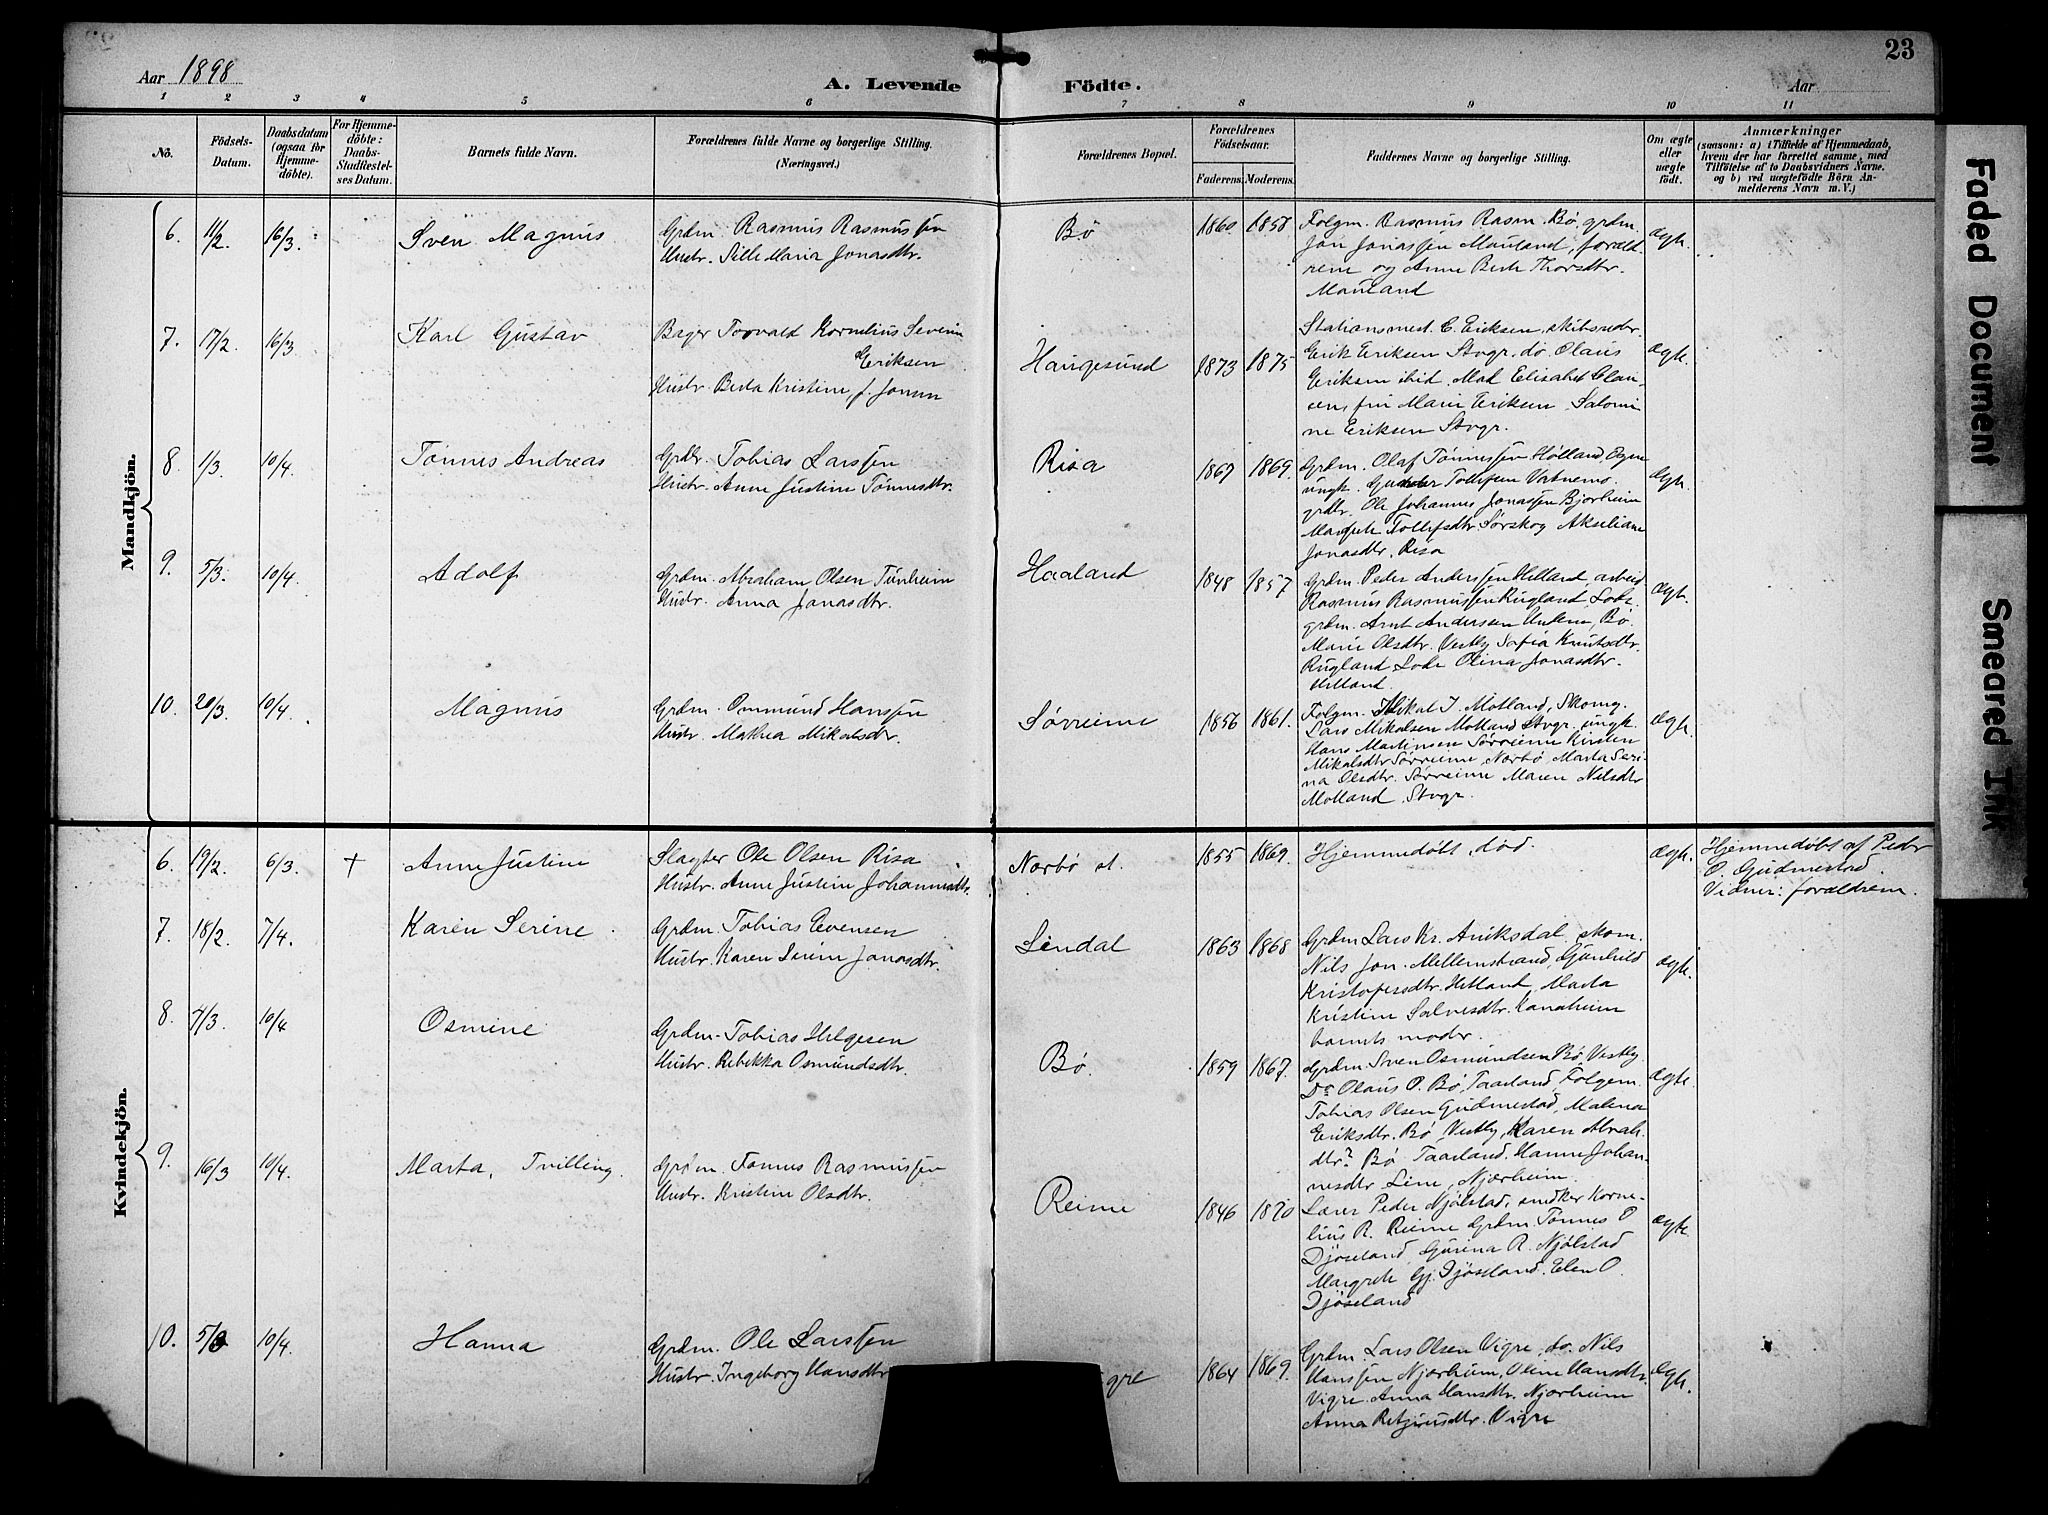 23
Aar 1898
A. Levende Födte.
Aar
1 2 3 4 5 6 7 8 9 10 11
Nö.
Födsels-
Datum.
Daabsdatum
(ogsaa för
Hjemme-
döbte).
For Hjemme-
döbte:
Daabs-
Stadfæstel-
ses Datum.
Barnets fulde Navn.
Forældrenes fulde Navne og borgerlige Stilling.
(Næringsvei.)
Forældrenes Bopæl.
Forældrenes
Födselsaar.
Faderens. Moderens.
Faddernes Navne og borgerlige Stilling.
Om ægte
eller
uægte
födt.
Anmærkninger
(saasom: a) i Tilfælde af Hjemmedaab,
hvem der har forrettet samme, med
Tilföielse af to Daabsvidners Navne.
og b) ved uægtefödte Börn An-
melderens Navn m. V.)
Mandkjön.
6. 11/2 16/3 Sven Magnus
Grdm. Rasmus Rasmussen
Hustr. Sille Maria Jonasdtr.
Bø 1860 1858
Folgm. Rasmus Rasm. Bø, grdm.
Jon Jonassen Mauland, foræld-
rene og Anne Berte Thorsdtr.
Mauland
ægte.
7. 17/2. 16/3 Karl Gustav
Bager Torvald Kornelius Severin
Eriksen
Hustr. Berta Kristine, f. Jonsen
Haugesund 1873 1875
Stationsmest. C. Eriksen, skibsreder
Erik Eriksen Stvgr. do. Olaus
Eriksen ibid. Mad. Elisabet Clau-
sen, frü Marie Eriksen, Salomi-
ne Eriksen Stvgr.
ægte.
8. 1/3. 10/4. Tønnes Andreas
Grdbr. Tobias Larssen
Hustr. Anne Justine Tønnesdtr.
Risa 1867 1869.
Grdm. Olaf Tønnessen Hølland, Ogne
ungk. Tollefsen Vatnemo.
grdbr. Ole Johannes Jonassen Bjorheim
Margrete Tollefsdtr. Sørskog Akseliane
Jonasdtr, Risa
ægte.
9. 5/3. 10/4. Adolf
Grdm. Abraham Olsen Tunheim
Hustr. Anna Jonasdtr.
Haaland 1848 1857
Grdm. Peder Anderssen Helland, arbeid.
Rasmus Rasmussen Rugland, Lode.
grdm. Arnt Anderssen Undem, Bø.
Marie Olsdtr. Vestly Sofia Knutsdtr.
Rugland, Lode Olina Jonasdtr.
Helland.
ægte.
10. 20/3. 10/4. Magnus
Grdm. Ommund Hanssen
Hustr. Mathea Mikalsdtr.
Sørreime 1856 1861.
Folgm. Mikal J. Motland, Skomg.
Lars Mikalsen Motland Stvgr. ungk.
Hans Martinsen Sørreime Kirsten
Mikalsdtr Sørreime, Narbø, Marta Seri-
na Olsdtr. Sørreime Maren Nilsdtr
Motland, Stvgr.
ægte.
Kvindekjön.
6. 19/2. 6/3. † Anne Justine
Slagter Ole Olsen Risa
Hustr. Anne Justine Johannesdtr.
Narbø st. 1855 1869.
Hjemmedøbt, død.
ægte.
Hjemmedøbt af Peder
O. Gudmestad.
Vidner: forældrene.
7. 18/2. 7/4. Karen Serine
Grdm. Tobias Evensen
Hustr. Karen Serine Jonasdtr.
Lindal 1863 1868
Grdm. Lars Kr. Aniksdal, skom.
Nils Jon. Mellemstrand, Gunhild
Kristofersdtr. Hetland, Marta
Kristine Salvesdtr. Kanaheim
barnets moder.
ægte.
8. 7/3. 10/4 Osmine
Grdm. Tobias Helgesen
Hustr. Rebekka Osmundsdtr.
Bø. 1859 1867.
Grdm. Sven Osmundsen Bø, Vestly.
Do Olaus O. Bø, Taarland, Folgem.
Tobias Olsen Gudmestad, Malena
Eriksdtr. Bø, Vestly, Karen Abrah.
dtr. Bø Taarland. Hanne Johan-
nesdtr Line, Njærheim.
ægte.
9. 16/3 10/4. Marta, Tvilling.
Grdm. Tønnes Rasmussen
Hustr. Kristine Olsdtr.
Reime 1846 1870
Lærer Peder Njølstad, snedker Korne-
lius R. Reime Grdm. Tønnes O
Djøseland, Gurina R. Njølstad
Margrete Gj. Djøseland, Elen O.
Djøseland
ægte
10. 5/3 10/4. Hanna
Grdm. Ole Larssen
Hustr. Ingeborg Hansdtr
gre 1864 1869.
Grdm. Lars Olsen Vigre, do. Nils
Hanssen Njærheim, Oline Hansdtr.
Vigre. Anna Hansdtr. Njærheim
Anna Vigre
ægte.
Faded Document
Smeared Ink